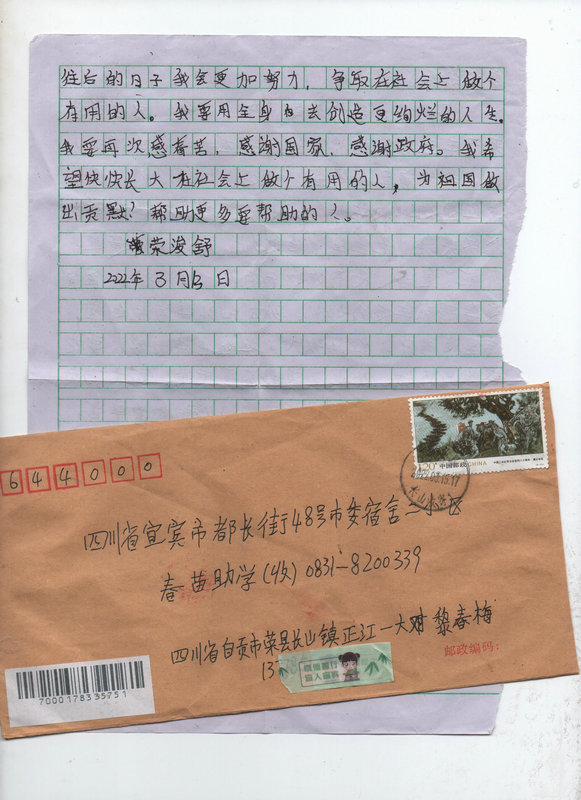 往后的日子我会更加努力，争取在社会上做个
有用的人。我要用全身去创造更绚烂的人生。
我要再次感春苗，感谢国家，感谢政府。我希
望快快长大在社会上做个有用的人，为祖国做
出贡献？帮助更多要帮助的人。
荣浚舒
2022年3月13日
1.20
中国邮政 CHINA
644000
四川省宜宾市都长街48号市委宿舍二小区
春苗助学(收) 0831-8200339
四川省自贡市荣县长山镇正江一大对 黎春梅
13
邮政编码：
7000178335751